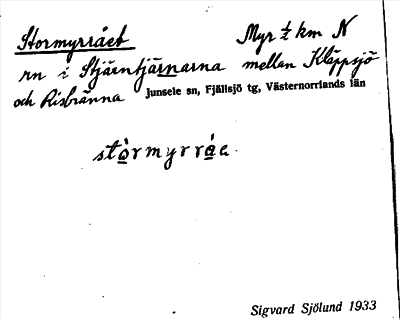 Stormyrrået Myr ½ km N
rn i Stjärntjärnarna mellan Kläppsjö
och Risbränna Junsele sn, Fjällsjö tg, Västernorrlands län
stòrmyrråa
Sigvard Sjölund 1933